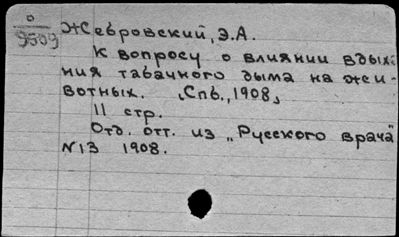 0
9509
Жебровский, Э.А.
К вопросу о влиянии вдыха-
ния табачного дыма на жи-
вотных. [Спб., 1908]
11 стр.
Отд. отт. из „Русского врача"
N13 1908.